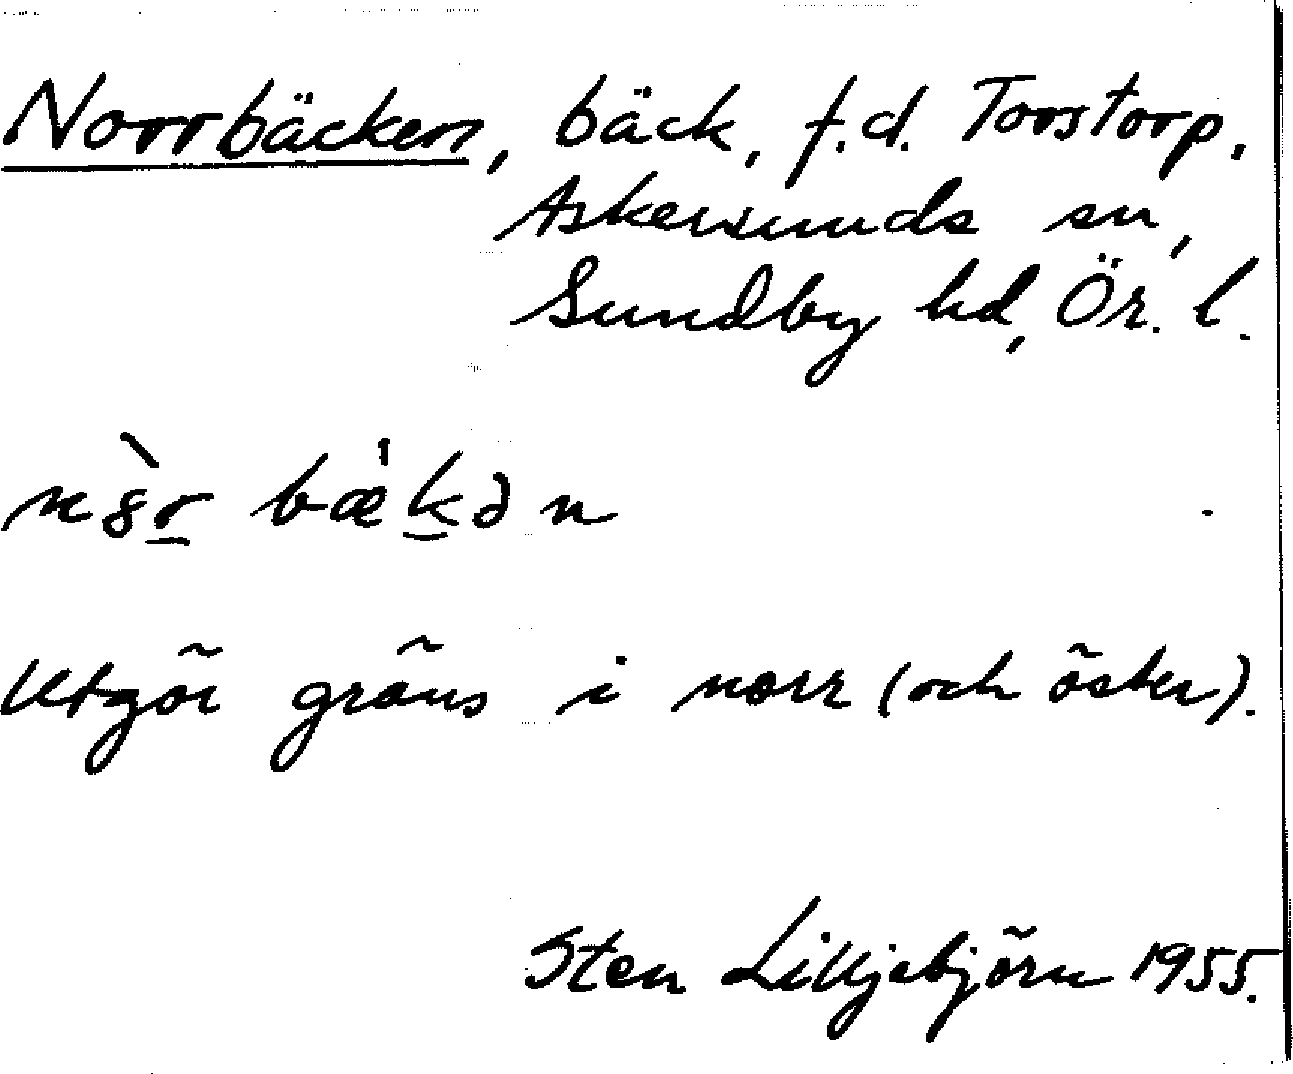 Norrbäcken, bäck, f.d. Torstorp,
Askersunds sn,
Sundby hd, Ör. l.
nòr bækən
Utgör gräns i norr (och öster).
Sten Lilljebjörn 1955.